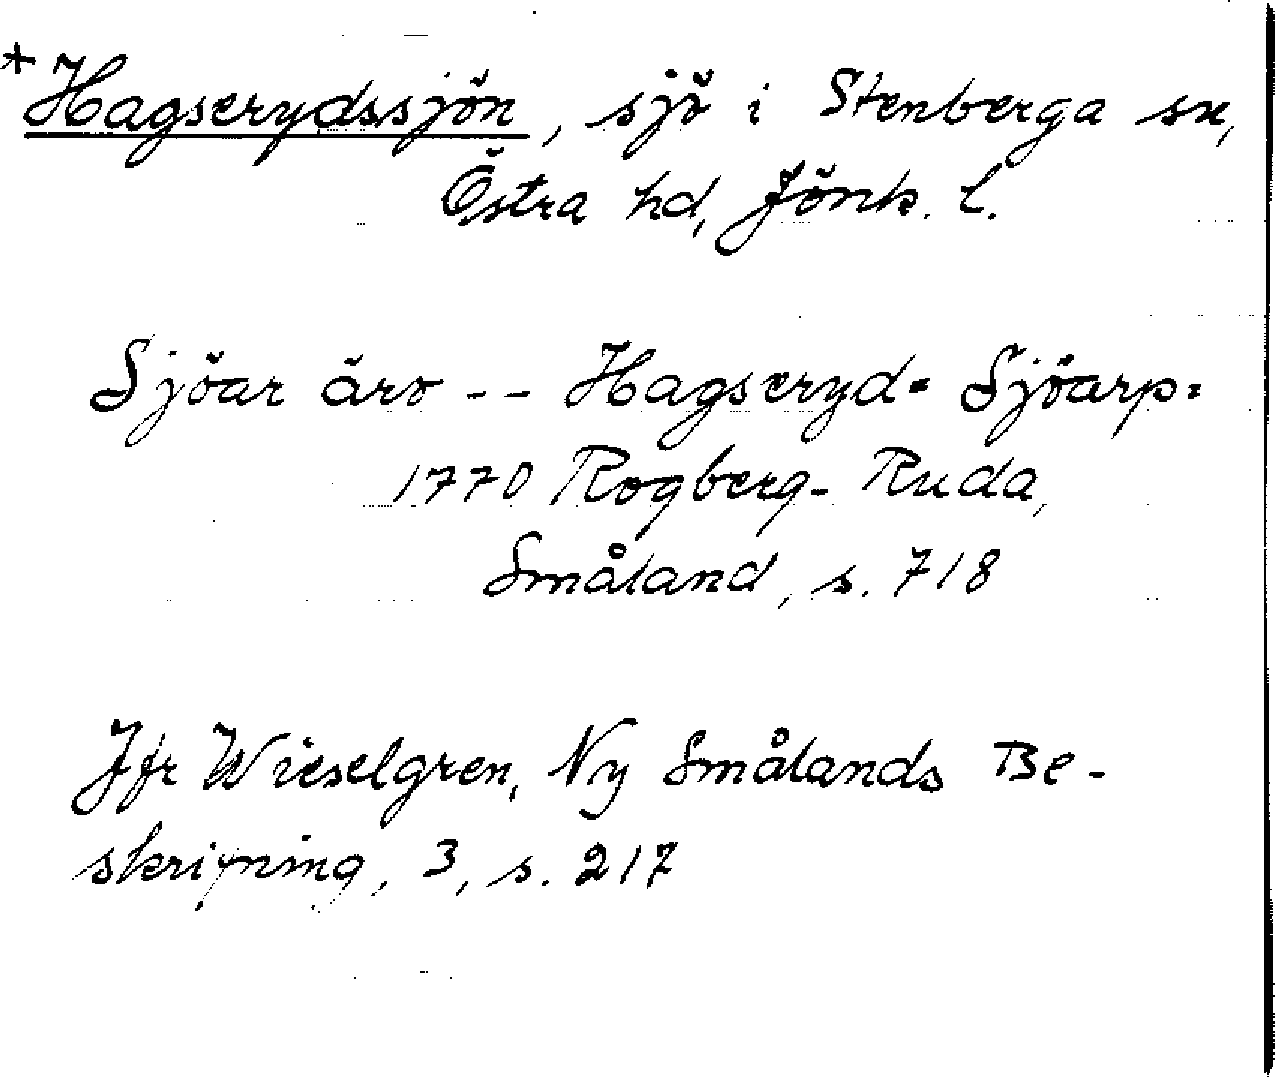 *Hagserydssjön, sjö i Stenberga sn,
Östra hd, Jönk. l.
Sjöar äro -- Hagseryd= Sjöarp=
1770 Rogberg-Ruda,
Småland, s. 718
Jfr Wieselgren, Ny Smålands Be-
skrifning, 3, s. 217